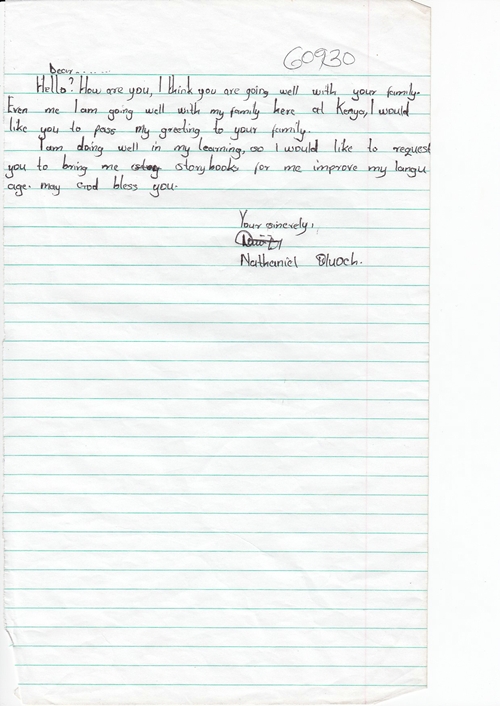 60930
Dear.......
Hello? How are you, I think you are going well with your family.
Even me I am going well with my family here at Kenya, I would
like you to pass my greeting to your family.
I am doing well in my learning, so I would like to request
you to bring me storybook for me improve my langu
age. may God bless you.
Your sincerely,
Nathaniel Oluoch.